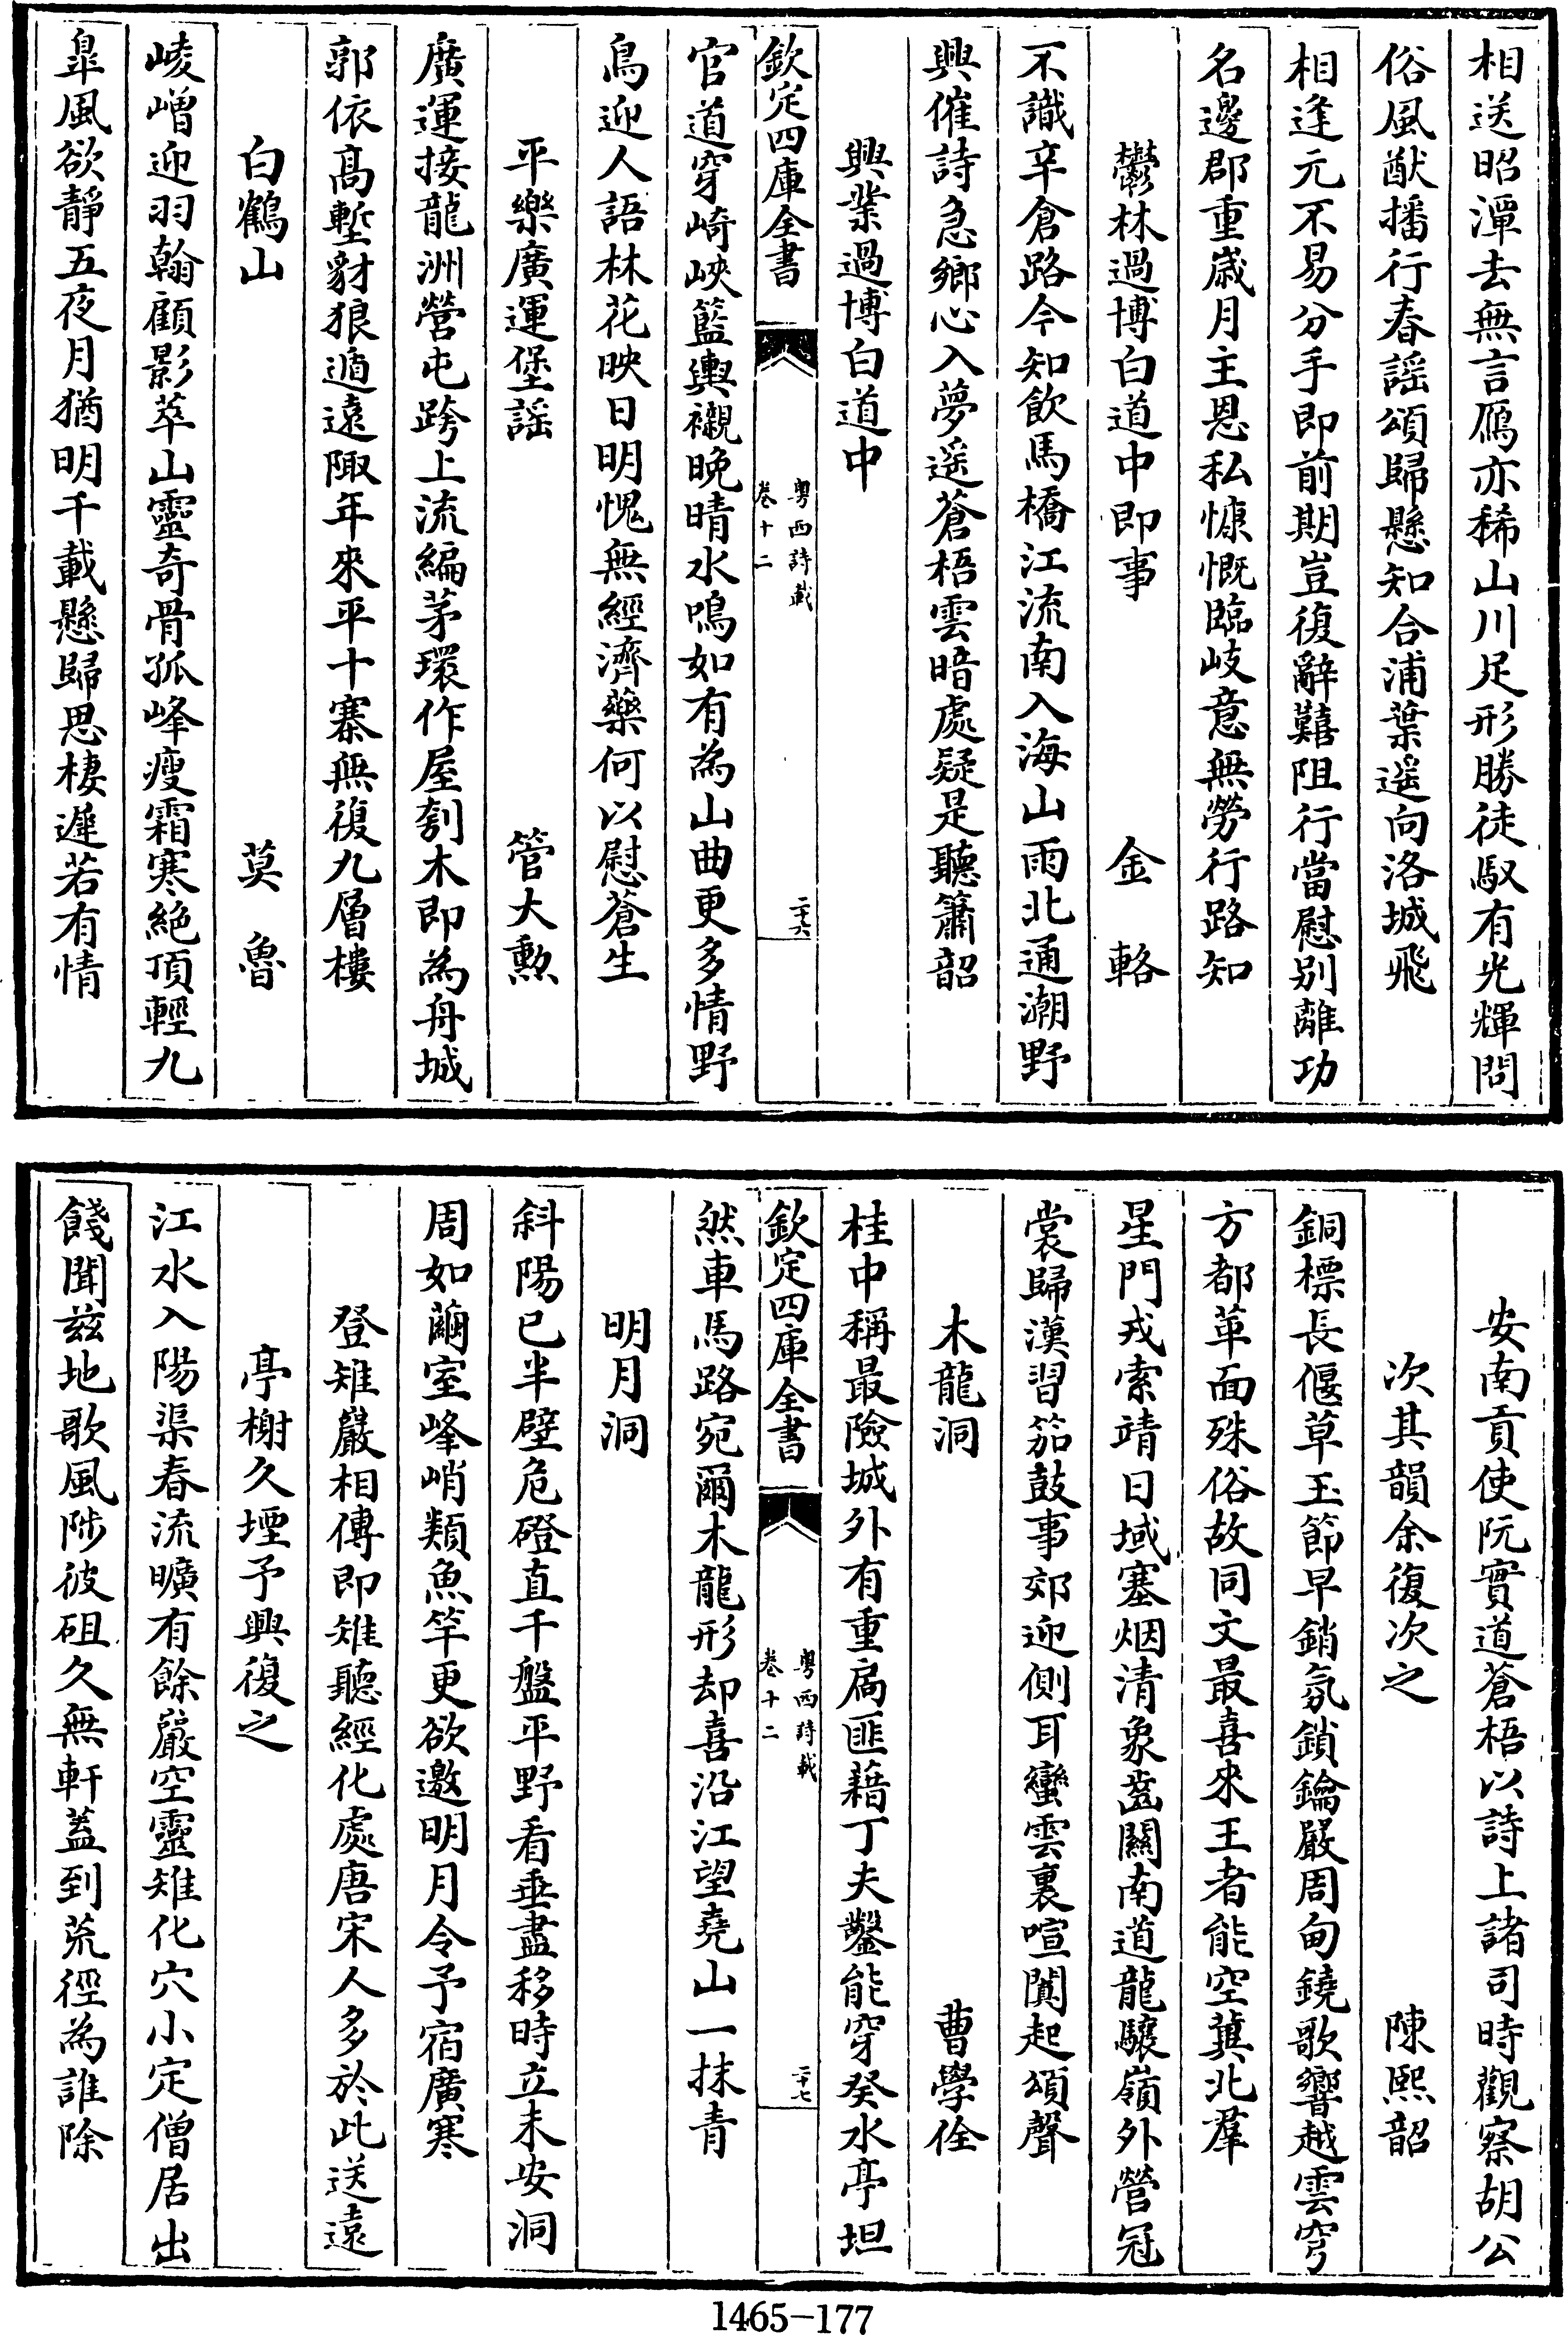 相送昭潭去無言鴈亦稀山川足形勝徒馭有光輝問
俗風猷播行春謡頌歸懸知合浦葉遥向洛城飛
相逢元不易分手即前期豈復辭囏阻行當慰别離功
名邊郡重歳月主恩私慷慨臨岐意無勞行路知
鬱林過博白道中即事 金輅
不識辛倉路今知飲馬橋江流南入海山雨北通潮野
興催詩急鄉心入夢遥蒼梧雲暗處疑是聽簫韶
興業過博白道中
欽定四庫全書 粤西詩載 卷十二 二十六
官道穿崎峽籃輿襯晚晴水鳴如有為山曲更多情野
鳥迎人語林花映日明愧無經濟藥何以慰蒼生
平樂廣運堡謡 管大勲
廣運接龍洲營屯跨上流編茅環作屋刳木即為舟城
郭依高塹豺狼遁遠陬年來平十寨無復九層樓
白鶴山 莫魯
崚嶒迎羽翰顧影萃山靈奇骨孤峰瘦霜寒絶頂輕九
臯風欲靜五夜月猶明千載懸歸思棲遲若有情
安南貢使阮實道蒼梧以詩上諸司時觀察胡公
次其韻余復次之 陳熙韶
銅標長偃草玉節早銷氛鎖鑰嚴周甸鐃歌響越雲穹
方都革面殊俗故同文最喜來王者能空冀北羣
星門戎索靖日域塞烟清象齒關南道龍驤嶺外營冠
裳歸漢習笳鼓事郊迎側耳蠻雲裏喧闐起頌聲
木龍洞 曹學佺
桂中稱最險城外有重扃匪藉丁夫鑿能穿癸水亭坦
欽定四庫全書 粤西詩載 卷十二 二十七
然車馬路宛爾木龍形却喜沿江望堯山一抹青
明月洞
斜陽已半壁危磴直千盤平野看垂盡移時立未安洞
周如繭室峰峭類魚竿更欲邀明月令予宿廣寒
登雉巖相傳即雉聽經化處唐宋人多於此送遠
亭榭久堙予興復之
江水入陽渠春流曠有餘巖空靈雉化穴小定僧居出
餞聞兹地歌風陟彼砠久無軒蓋到荒徑為誰除
1465-177